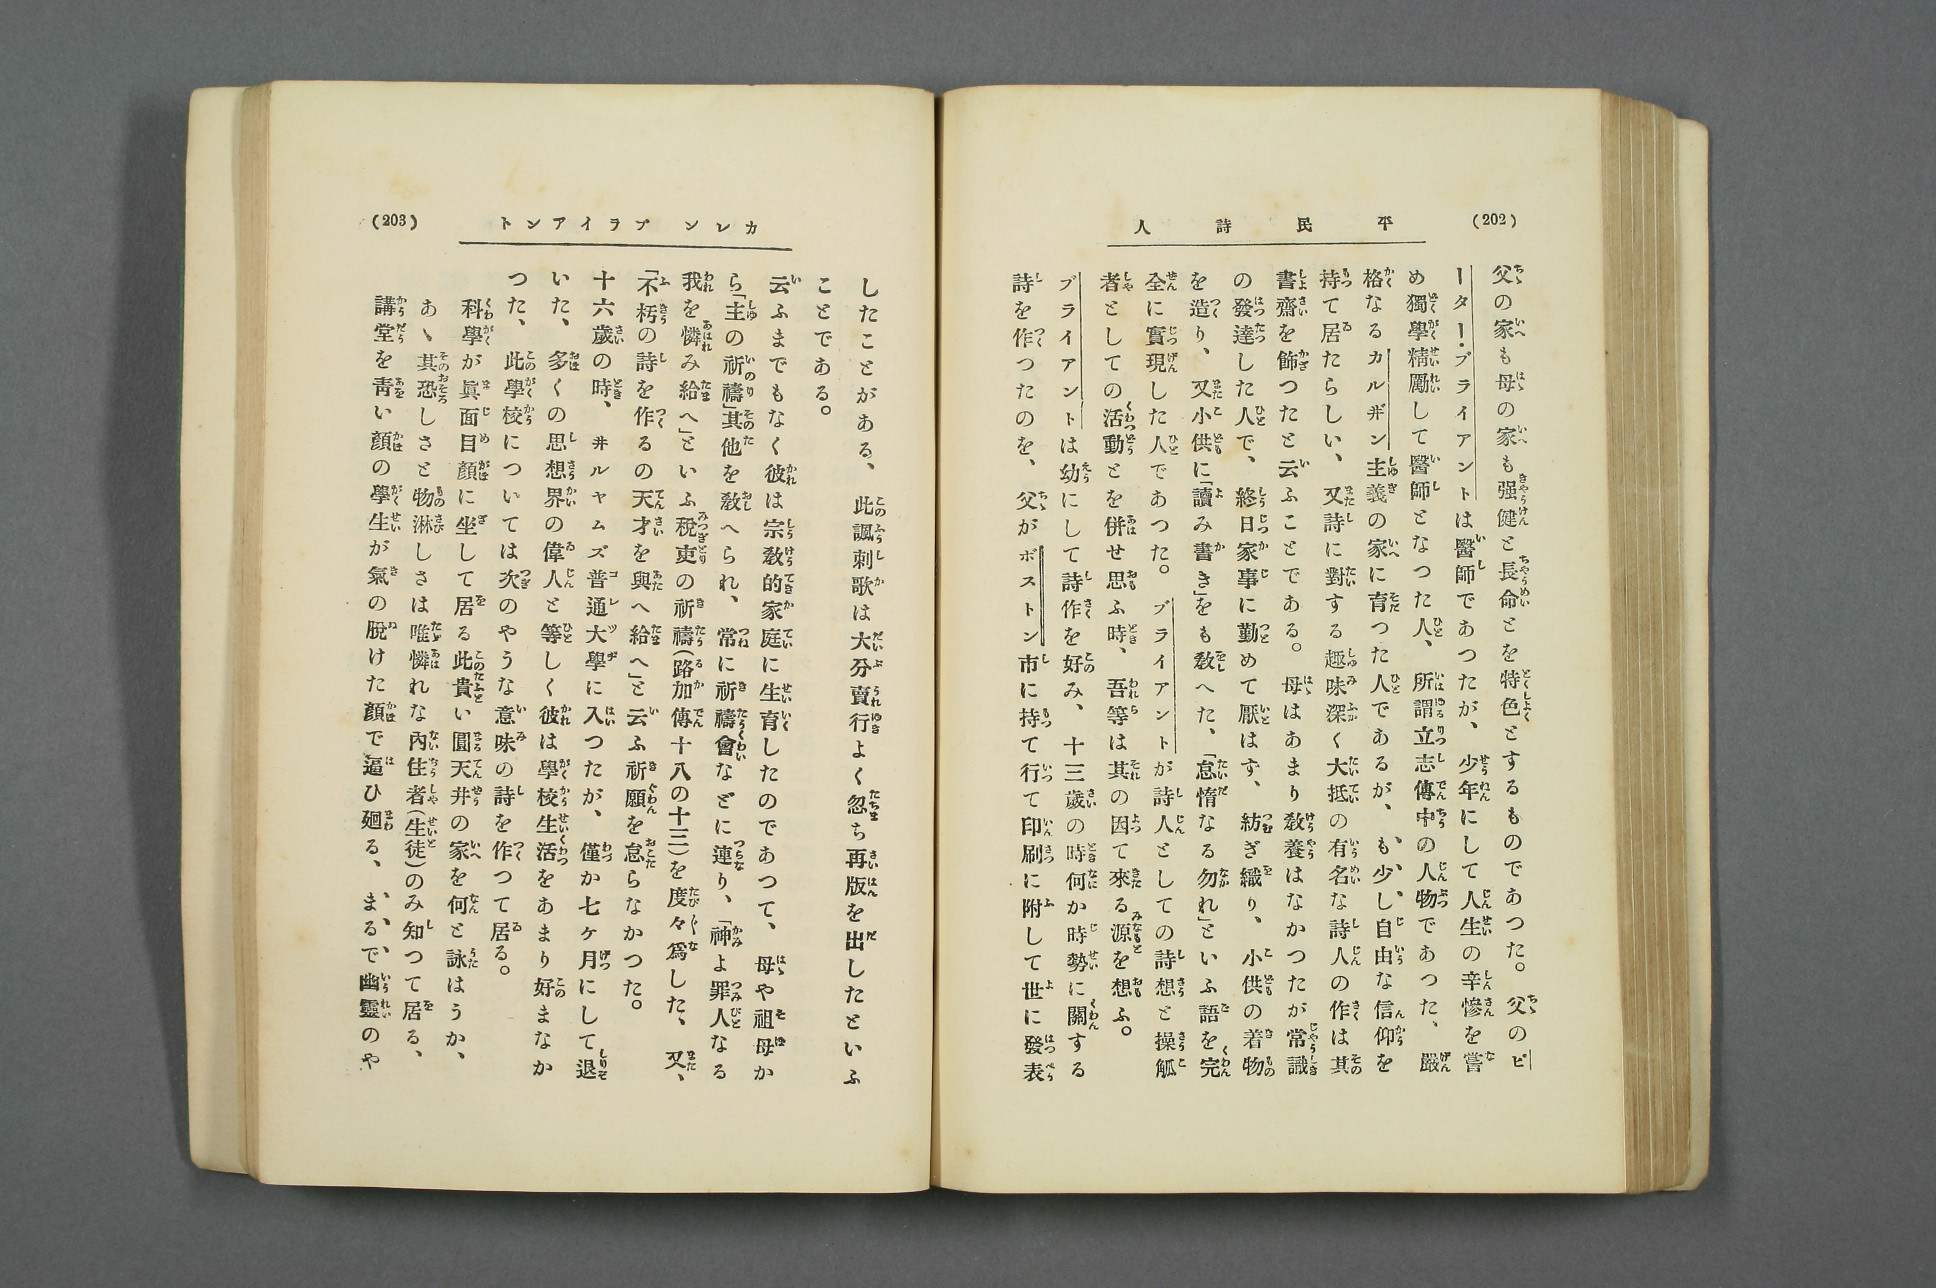 (202)
平民詩人
父の家も母の家も强健と長命とを特色とするものであつた。父のピ
ーター・ブライアントは醫師であつたが、少年にして人生の辛慘を嘗
め獨學精厲して醫師となつた人、所謂立志傳中の人物であった、嚴
格なるカルヸン主義の家に育つた人であるが、も少し自由な信仰を
持て居たらしい、又詩に對する趣味深く大抵の有名な詩人の作は其
書齋を飾つたと云ふことである。母はあまり敎養はなかつたが常識
の發達した人で、終日家事に勤めて厭はず、紡ぎ織り、小供の着物
を造り、又小供に「讀み書き」をも敎へた、「怠惰なる勿れ」といふ語を完
全に實現した人であつた。ブライアントが詩人としての詩想と操觚
者としての活動とを併せ思ふ時、吾等は其の因て來る源を想ふ。
ブライアントは幼にして詩作を好み、十三歲の時何か時勢に關する
詩を作つたのを、父がボストン市に持て行て印刷に附して世に發表
(203)
カレン ブライアント
したことがある、此諷刺歌は大分賣行よく忽ち再版を出したといふ
ことである。
云ふまでもなく彼は宗敎的家庭に生育したのであつて、母や祖母か
ら「主の祈禱」其他を敎へられ、常に祈禱會などに連り、「神よ罪人なる
我を憐み給へ」といふ稅吏の祈禱(路加傳十八の十三)を度々爲した、又、
「不朽の詩を作るの天才を與へ給へ」と云ふ祈願を怠らなかつた。
十六歲の時、ヰルヤムズ普通大學に入つたが、僅か七ヶ月にして退
いた、多くの思想界の偉人と等しく彼は學校生活をあまり好まなか
つた、此學校については次のやうな意味の詩を作つて居る。
科學が眞面目顏に坐して居る此貴い圓天井の家を何と詠はうか、
あゝ其恐しさと物淋しさは唯憐れな內住者(生徒)のみ知つて居る、
講堂を靑い顏の學生が氣の脫けた顏で逼ひ廻る、まるで幽靈のや